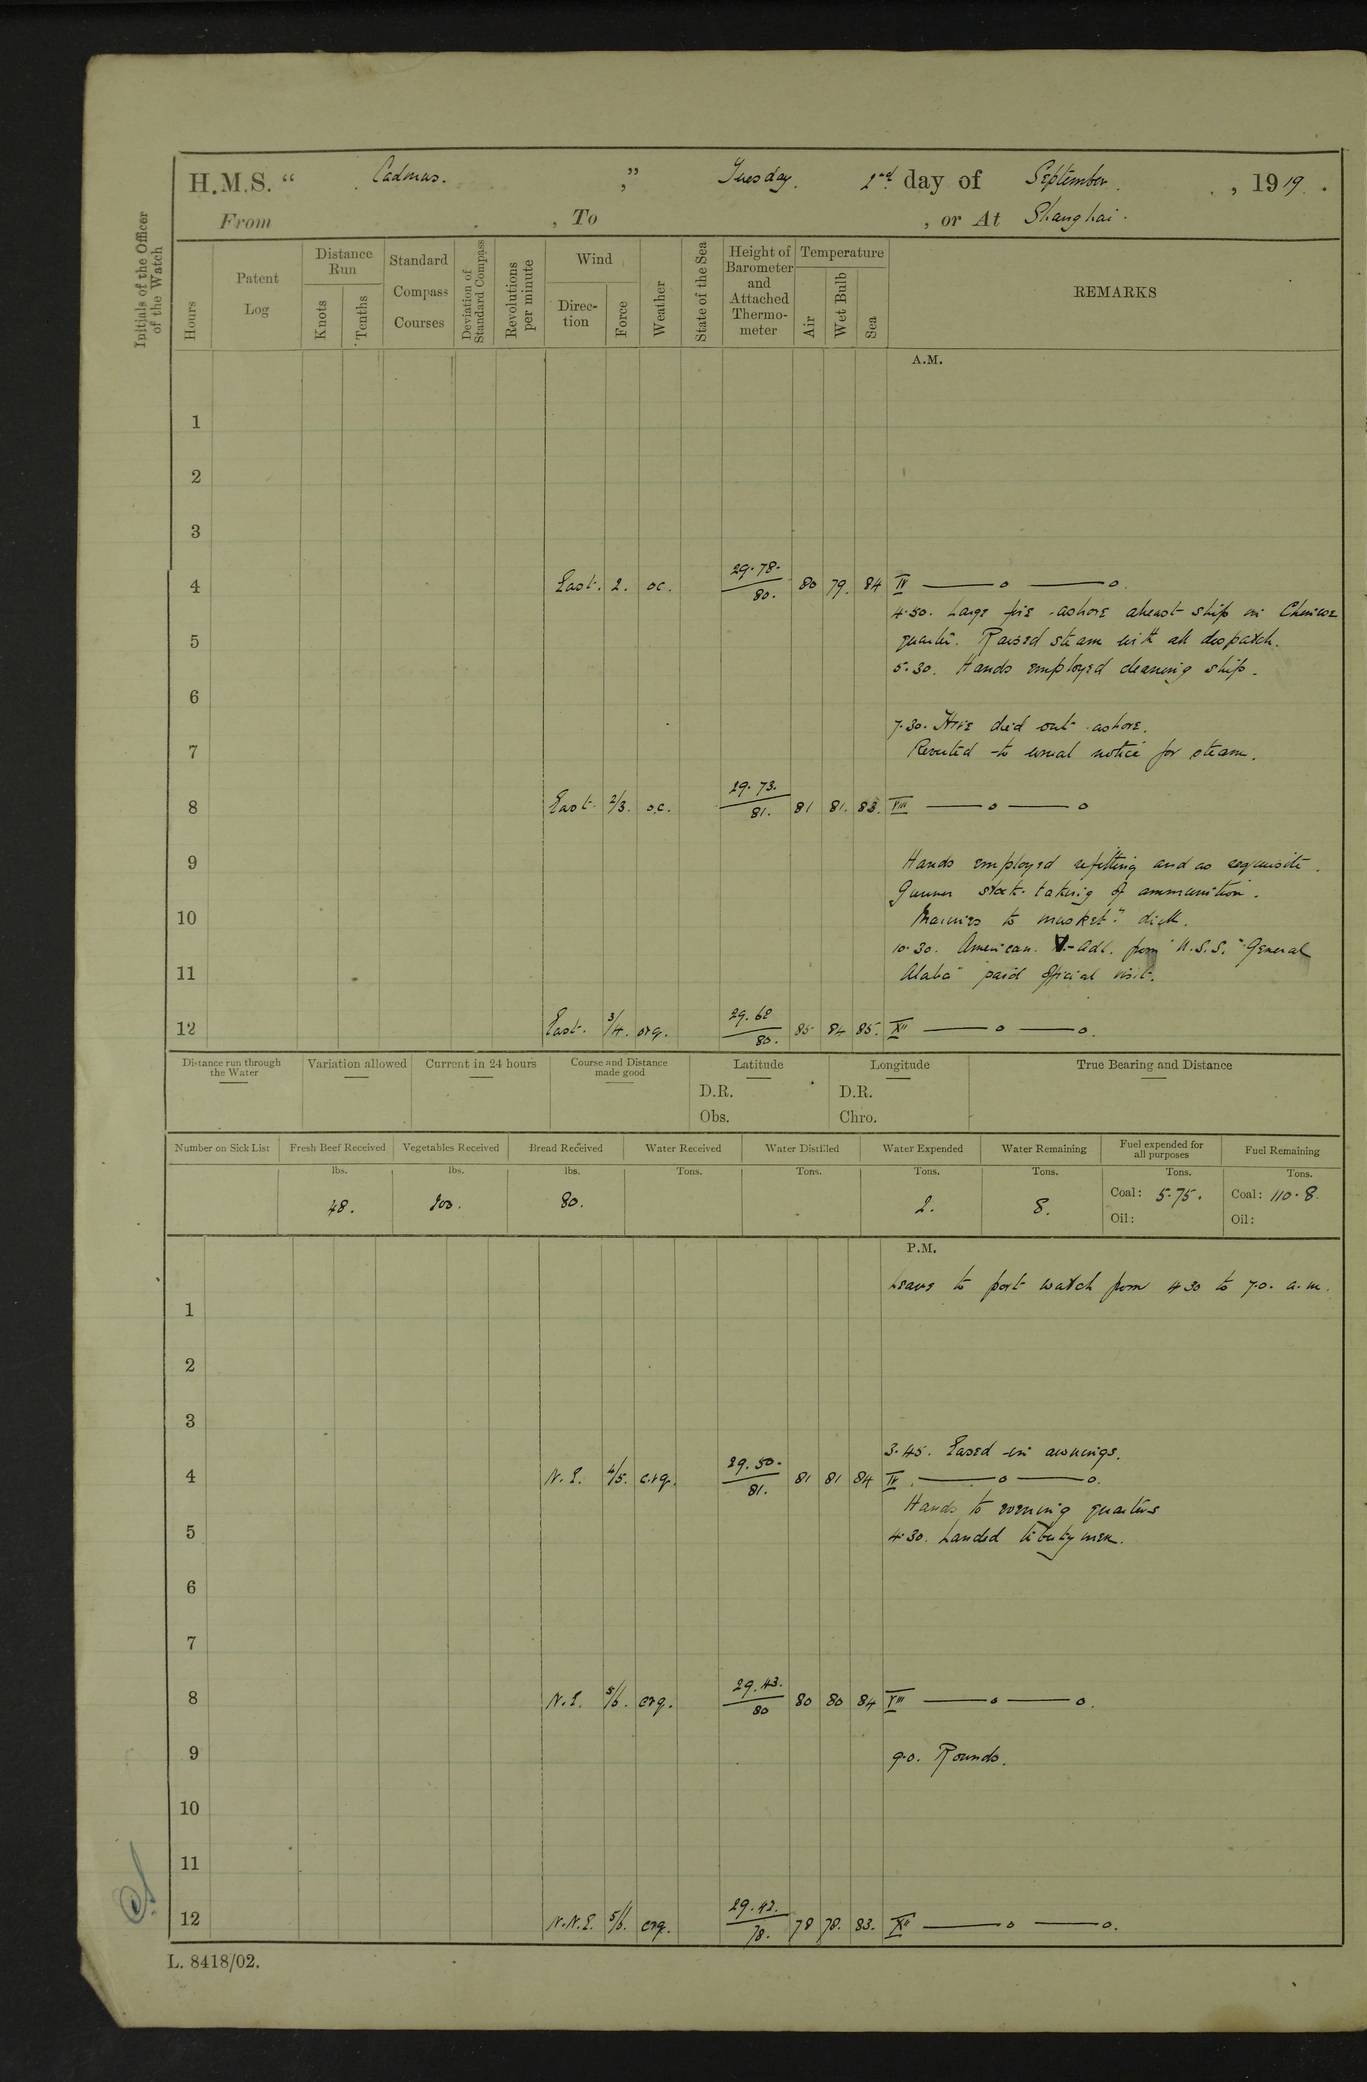 H.M.S. “ Cadmus. ,” Tuesday. 2nd day of September. , 1919.
From , To , or At Shanghai.
Initials of the Officer of the Watch
Hours
Patent Log
Distance Run
Knots
Tenths
Standard Compass Courses
Deviation of Standard Compass
Revolutions per minute
Wind
Direction
Force
Weather
State of the Sea
Height of Barometer and Attached Thermometer
Temperature
Air
Wet Bulb
Sea
REMARKS
A.M.
1
2
3
4 East. 2. oc. 29.78. 80. 80 79. 84 IV —— o —— o.
4.50. Large fire ashore abreast ship in Chinese
5 quarter. Raised steam with all despatch.
5.30. Hands employed cleaning ship.
6
7.30. Fire died out ashore.
7 Reverted to usual notice for steam.
8 East. 2/3. o.c. 29.73. 81. 81 81. 83. VIII —— o —— o
9 Hands employed refitting and as requisite.
Gunner stock taking of ammunition.
10 Marines to musket.y drill.
10.30. American V-Adl. from U.S.S. "General
11 Alaba" paid official visit.
12 East. 3/4. org. 29.62 80. 85 84 85. XII —— o —— o.
Distance run through the Water
Variation allowed
Current in 24 hours
Course and Distance made good
Latitude
D.R.
Obs.
Longitude
D.R.
Chro.
True Bearing and Distance
Number on Sick List
Fresh Beef Received lbs. 48.
Vegetables Received lbs. 200.
Bread Received lbs. 80.
Water Received Tons.
Water Distilled Tons.
Water Expended Tons. 2.
Water Remaining Tons. 8.
Fuel expended for all purposes Tons.
Coal: 5.75.
Oil:
Fuel Remaining Tons.
Coal: 110.8.
Oil:
P.M.
Leave to port watch from 4.30 to 7.0. a.m.
1
2
3
3.45. Eased in awnings.
4 N.E. 4/5. c.rq. 29.50. 81. 81 81 84 IV. —— o —— o.
Hands to evening quarters
5 4.30. Landed libertymen.
6
7
8 N.E. 5/6. crq. 29.43. 80 80 80 84 VIII —— o —— o.
9 9.0. Rounds.
10
11
12 N.N.E. 5/6. crq. 29.42. 78. 78 78. 83. XII —— o —— o.
L. 8418/02.